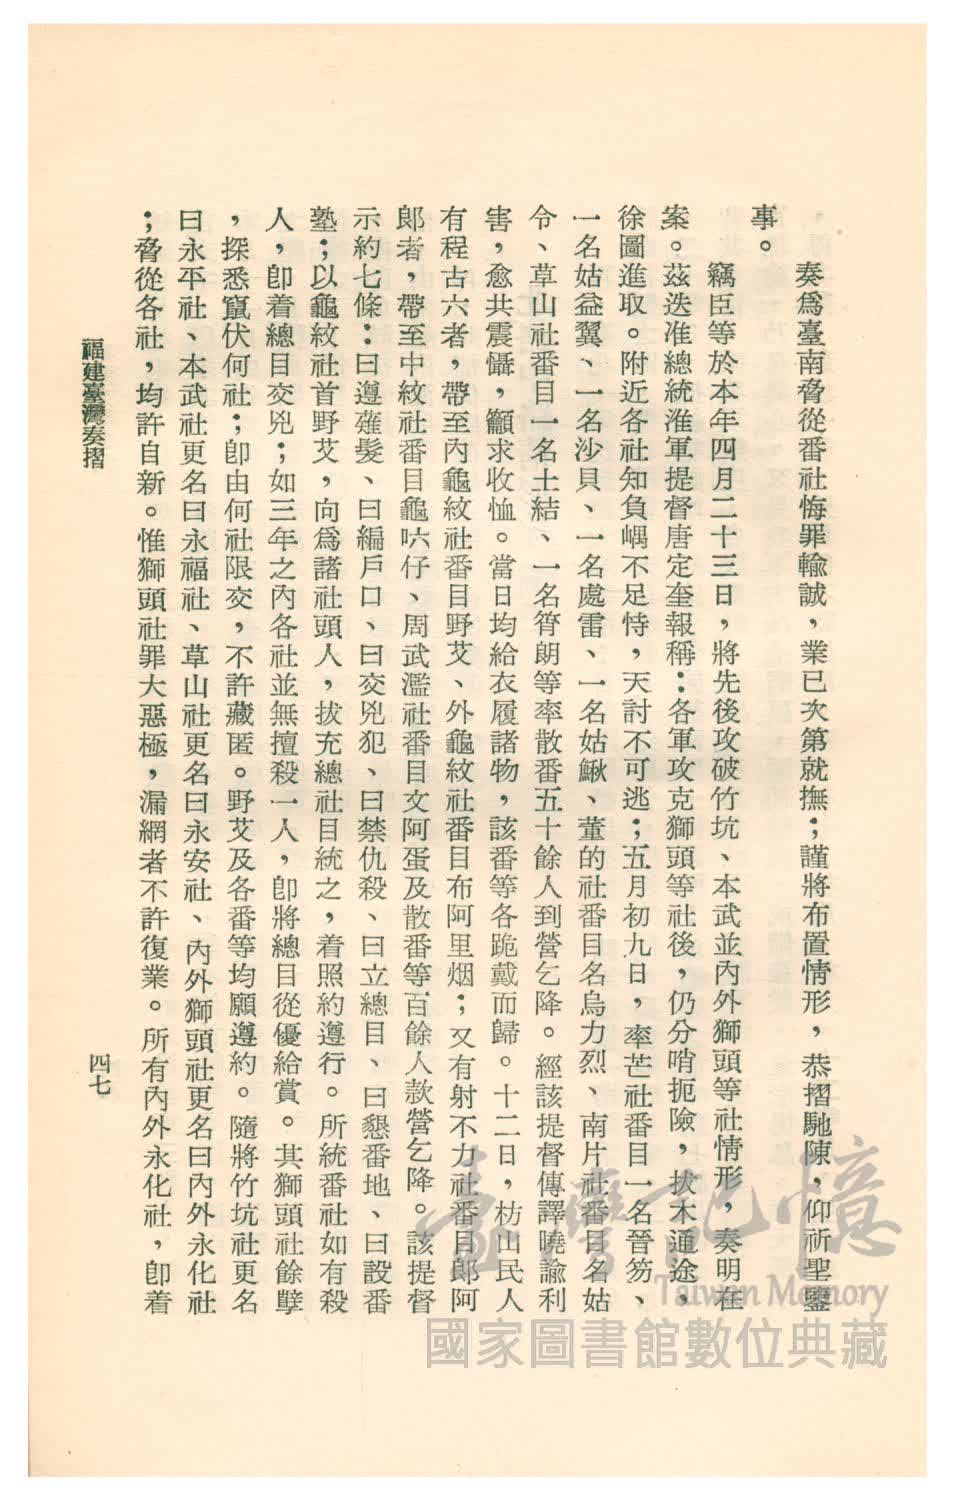 奏爲臺南脅從番社悔罪輸誠，業已次第就撫；謹將布置情形，恭摺馳陳，仰祈聖鑒
事。
竊臣等於本年四月二十三日，將先後攻破竹坑、本武並內外獅頭等社情形，奏明在
案。茲迭准總統淮軍提督唐定奎報稱：各軍攻克獅頭等社後，仍分哨扼險，拔木通途，
徐圖進取。附近各社知負嵎不足恃，天討不可逃；五月初九日，率芒社番目一名晉笏、
一名姑益翼、一名沙貝、一名處雷、一名姑鰍、董的社番目名烏力烈、南片社番目名姑
令、草山社番目一名土結、一名筲朗等率散番五十餘人到營乞降。經該提督傳譯曉諭利
害，愈共震懾，籲求收恤。當日均給衣履諸物，該番等各跪戴而歸。十二日，枋山民人
有程古六者，帶至內龜紋社番目野艾、外龜紋社番目布阿里烟；又有射不力社番目郎阿
郞者，帶至中紋社番目龜六仔、周武濫社番目文阿蛋及散番等百餘人款營乞降。該提督
示約七條：曰遵薙髮、曰編戶口、曰交兇犯、曰禁仇殺、曰立總目、曰懇番地、曰設番
塾；以龜紋社首野艾，向爲諸社頭人，拔充總社目統之，着照約遵行。所統番社如有殺
人，卽着總目交兇；如三年之內各社並無擅殺一人，卽將總目從優給賞。其獅頭社餘孽
，探悉竄伏何社；卽由何社限交，不許藏匿。野艾及各番等均願遵約。隨將竹坑社更名
曰永平社、本武社更名曰永福社、草山社更名曰永安社、內外獅頭社更名曰內外永化社
；脅從各社，均許自新。惟獅頭社罪大惡極，漏網者不許復業。所有內外永化社，卽着
福建臺灣奏摺
四七
臺灣記憶
Taiwan Memory
國家圖書館數位典藏